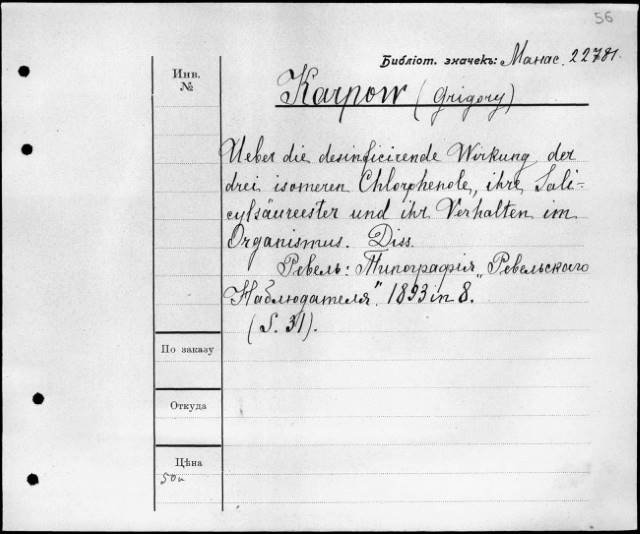 56
Библіот. значекъ: Манас. 22781.
Инв. №
Karpow (Grigory)
Ueber die desinficirende Wirkung der
drei isomeren Chlorphenole, ihre Sali-
cylsäureester und ihr Verhalten im
Organismus. Diss.
Ревель: Типографія „Ревельскаго
Наблюдателя". 1893 in 8.
(S. 31).
По заказу
Откуда
Цѣна
50к